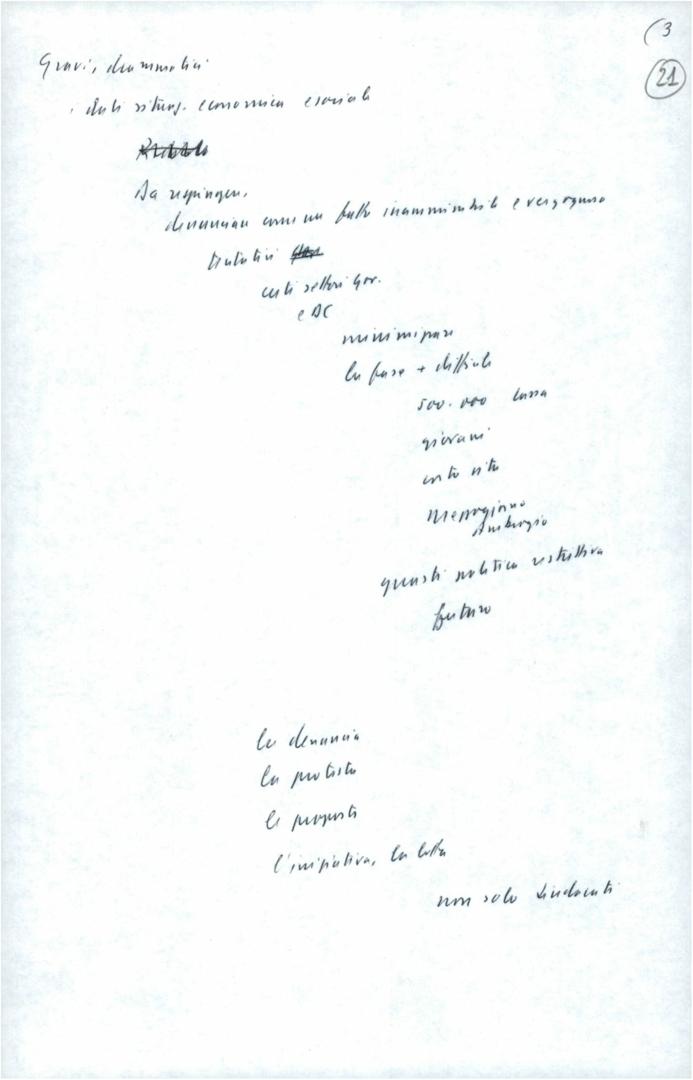 (3
21
Gravi, drammatici
i dati situaz. economica e sociale
Da respingere,
denunciare come un fatto inammissibile e vergognoso
tentativi
certi settori Gov.
e DC
minimizzare
la fase + difficile
500.000 cassa
giovani
costo vita
Mezzogiorno
Ambrogio
guasti politica restrittiva
futuro
la denuncia
la protesta
le proposte
l'iniziativa, la lotta
non solo sindacati